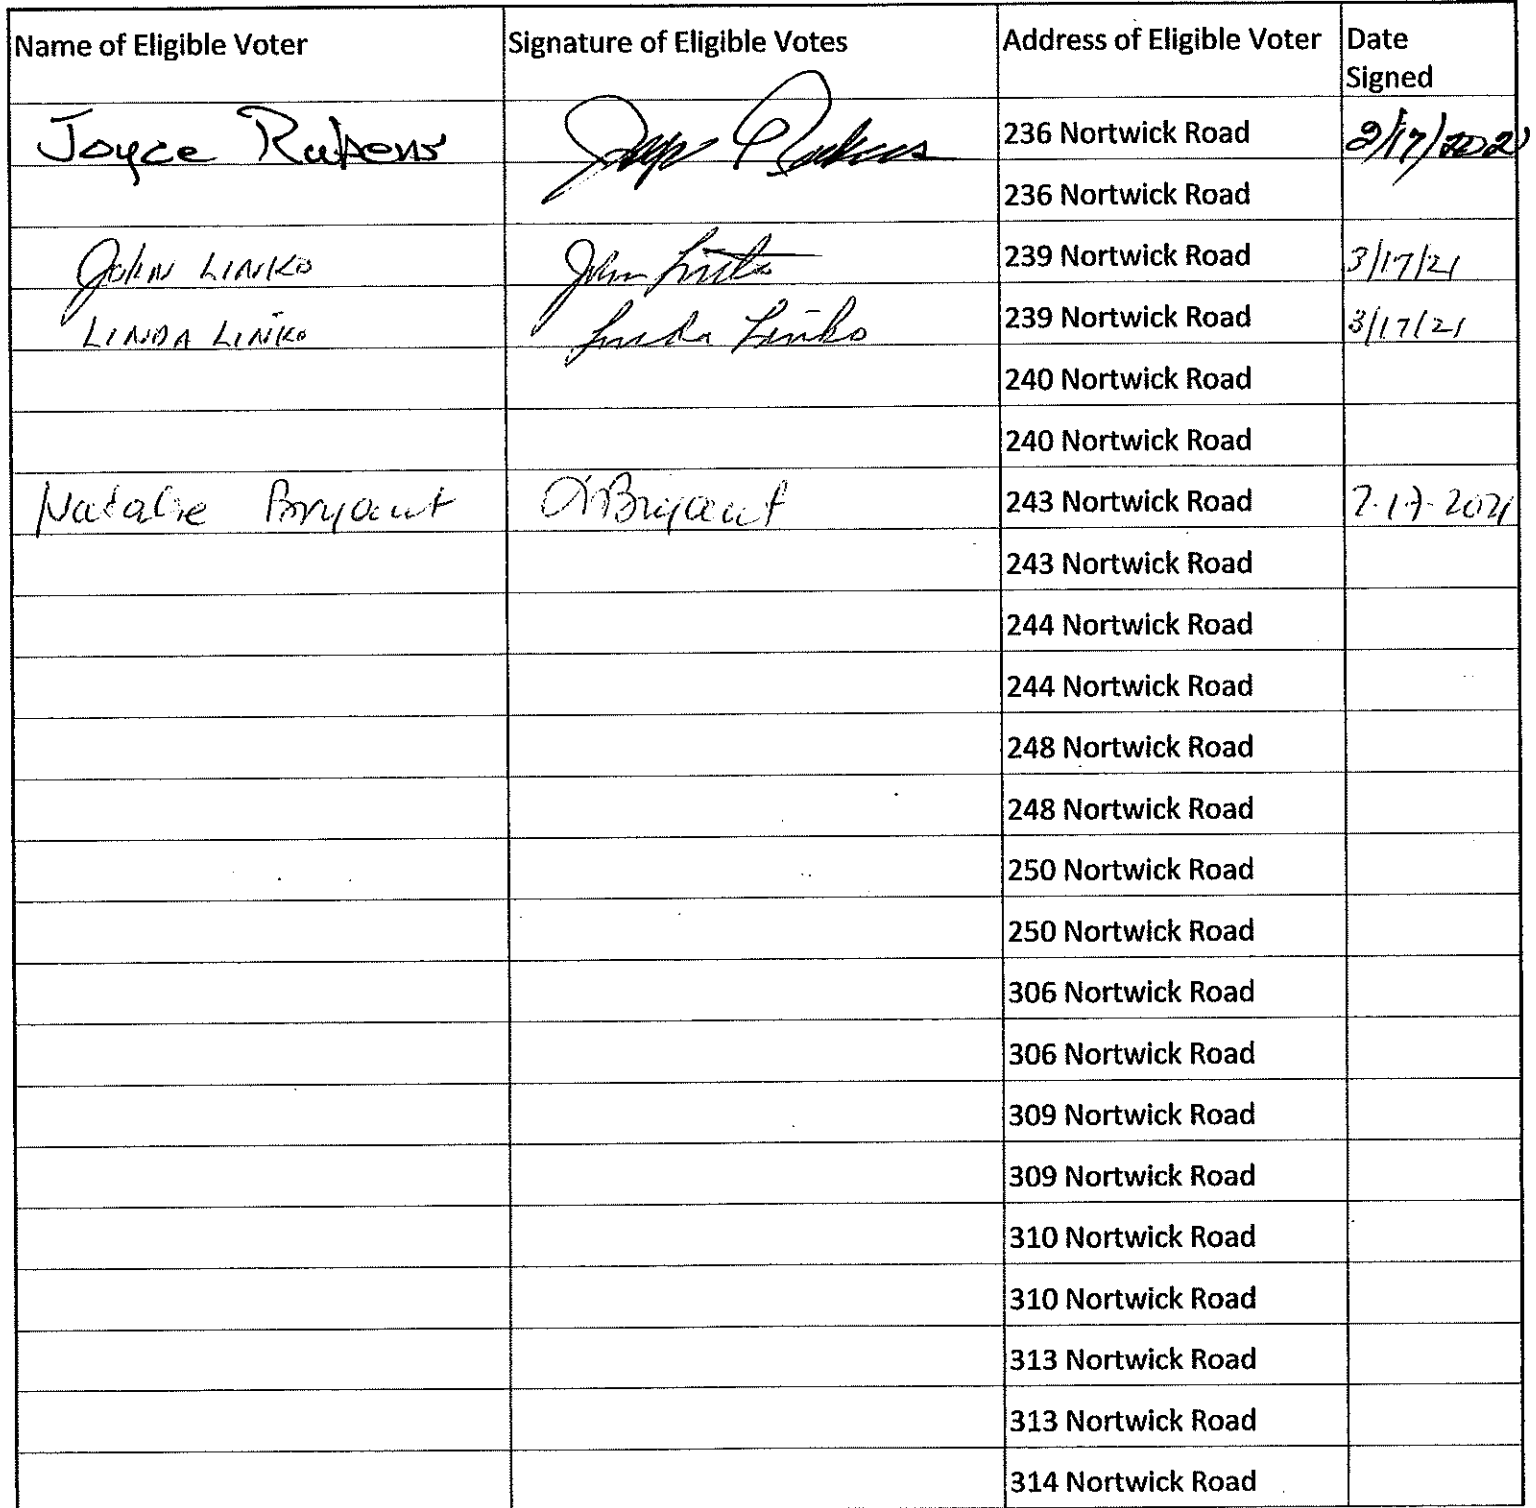 Name of Eligible Voter Signature of Eligible Votes Address of Eligible Voter Date Signed
Joyce Rubens 236 Nortwick Road 2/17/2021
236 Nortwick Road
John LINKO John Linko 239 Nortwick Road 3/17/21
LINDA LINKO Linda Linko 239 Nortwick Road 3/17/21
240 Nortwick Road
240 Nortwick Road
Natalie Bryant Bryant 243 Nortwick Road 2-17-2021
243 Nortwick Road
244 Nortwick Road
244 Nortwick Road
248 Nortwick Road
248 Nortwick Road
250 Nortwick Road
250 Nortwick Road
306 Nortwick Road
306 Nortwick Road
309 Nortwick Road
309 Nortwick Road
310 Nortwick Road
310 Nortwick Road
313 Nortwick Road
313 Nortwick Road
314 Nortwick Road